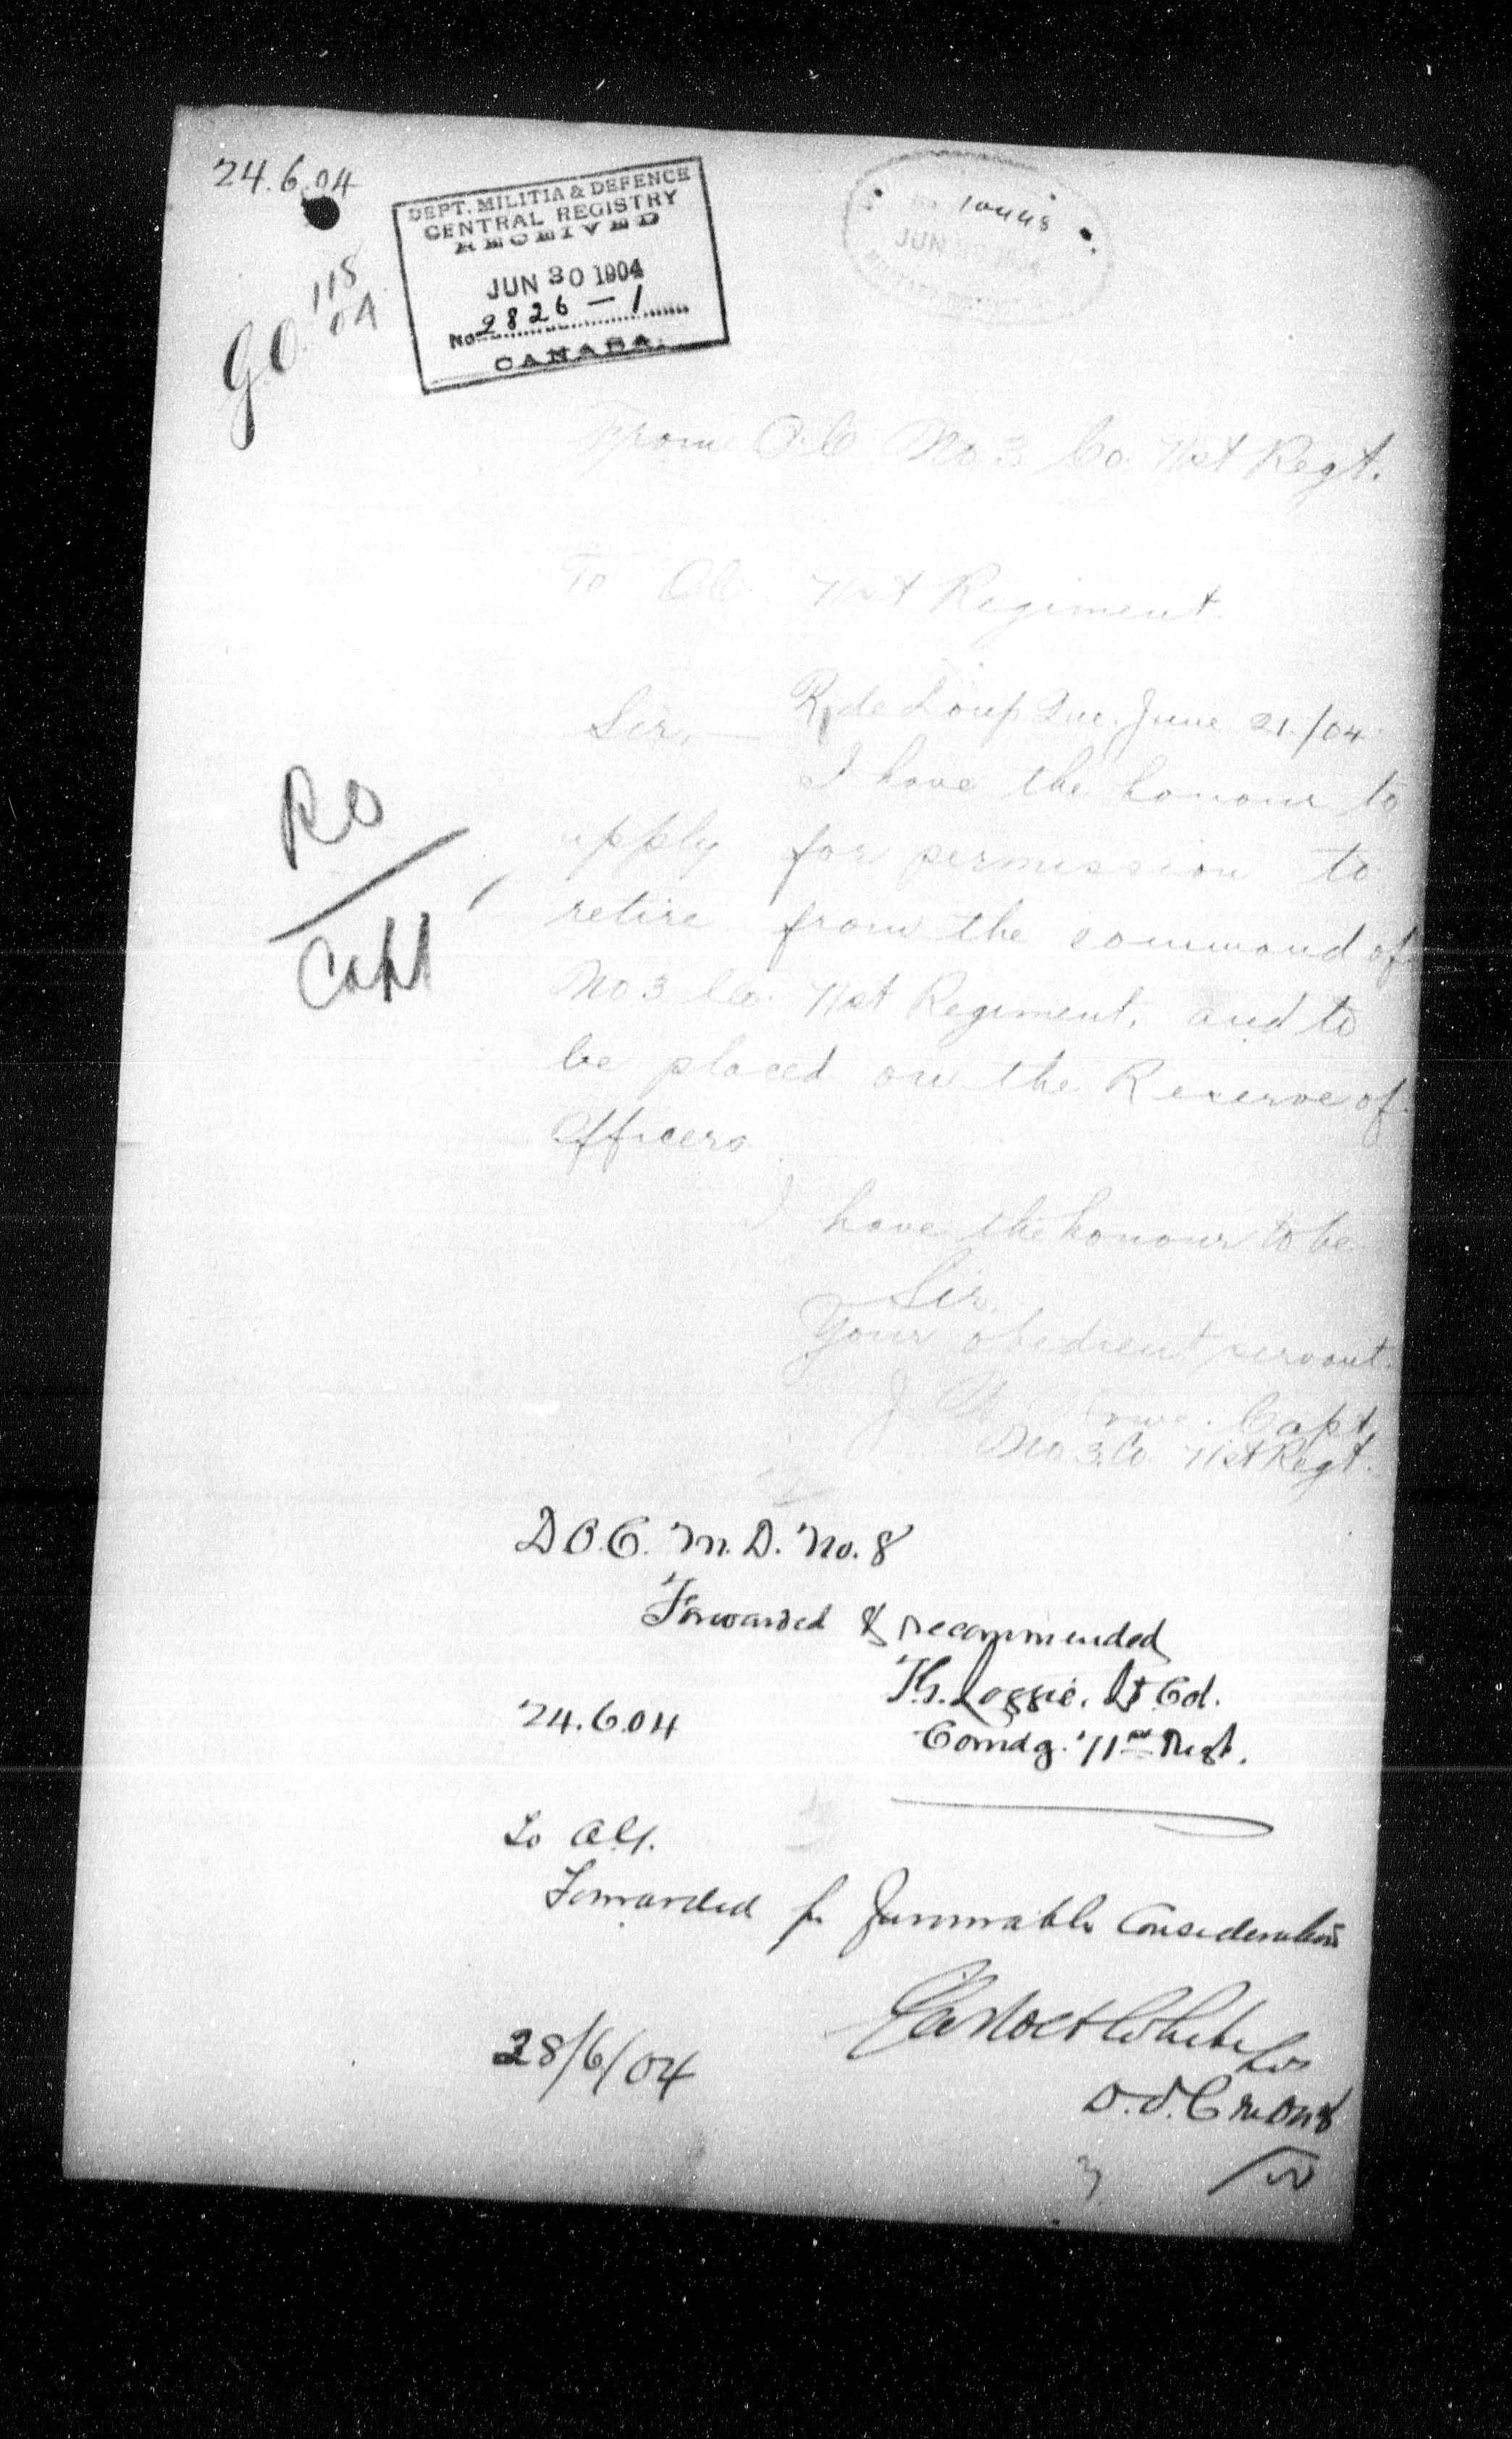 24.6.04
DEPT. MILITIA & DEFENCE
CENTRAL REGISTRY
RECEIVED
JUN 30 1904
No 2826 - 1
CANADA.
10448
JUN
G.O. 118
04
From O.C. No 3 Co. 71st Regt.
To O.C. 71st Regiment.
R. de Loup Que. June 21/04
Sir, —
I have the honour to
apply for permission to
retire from the command of
No 3 Co. 71st Regiment, and to
be placed on the Reserve of
Officers
RO
Capt
I have the honour to be
Sir.
Your obedient servant.
J. Capt.
No 3. Co. 71st Regt.
D O.C. M. D. No. 8
Forwarded & recommended
Lt Col.
24.6.04
Comdg. 71st Regt.
To AG.
Forwarded for favourable Consideration
28/6/04
D.O.C M D No 8